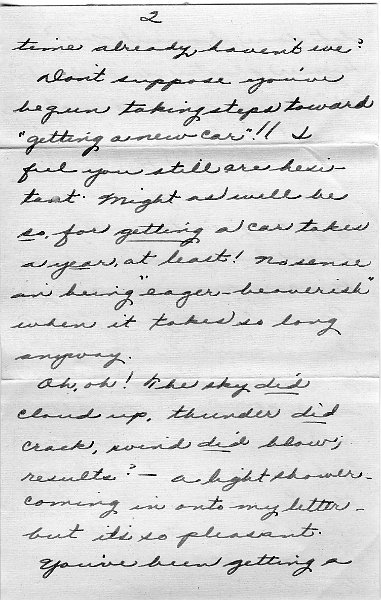 2
time already, haven't we?
Don't suppose you've
begun taking steps toward
"getting a new car"!! I
feel you still are hesi-
tant. Might as well be
so, for getting a car takes
a year, at least! No sense
in being "eager-beaverish"
when it takes so long
anyway.
Oh, oh! The sky did
cloud up, thunder did
crack, wind did blow;
results? — a light shower -
coming in onto my letter -
but it's so pleasant.
You've been getting a